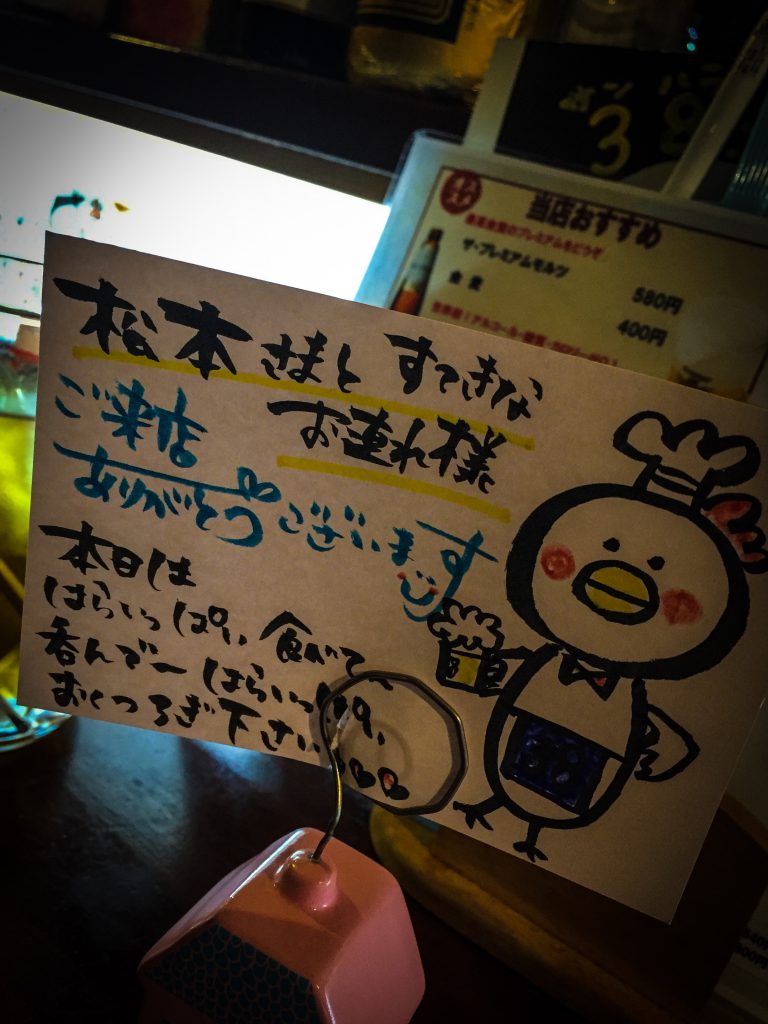 ハニ
3 8
オス
スメ
当店おすすめ
ザ・プレミアムモルツ
580円
金麦
400円
松本さまと すてきな
お連れ様
ご来店
ありがとうございます
本日は
はらいっぱい 食べて、
呑んでーはらいっぱい
おくつろぎ下さい